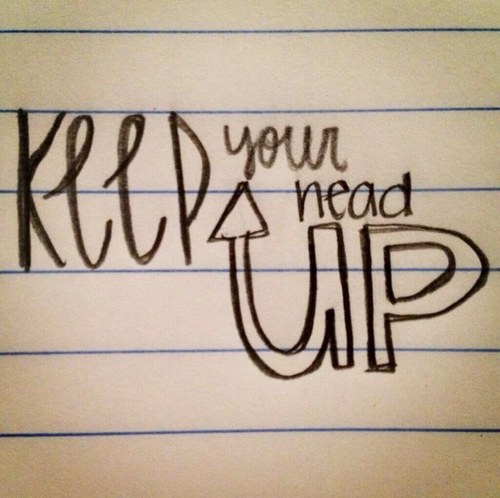 Keep your
head
UP